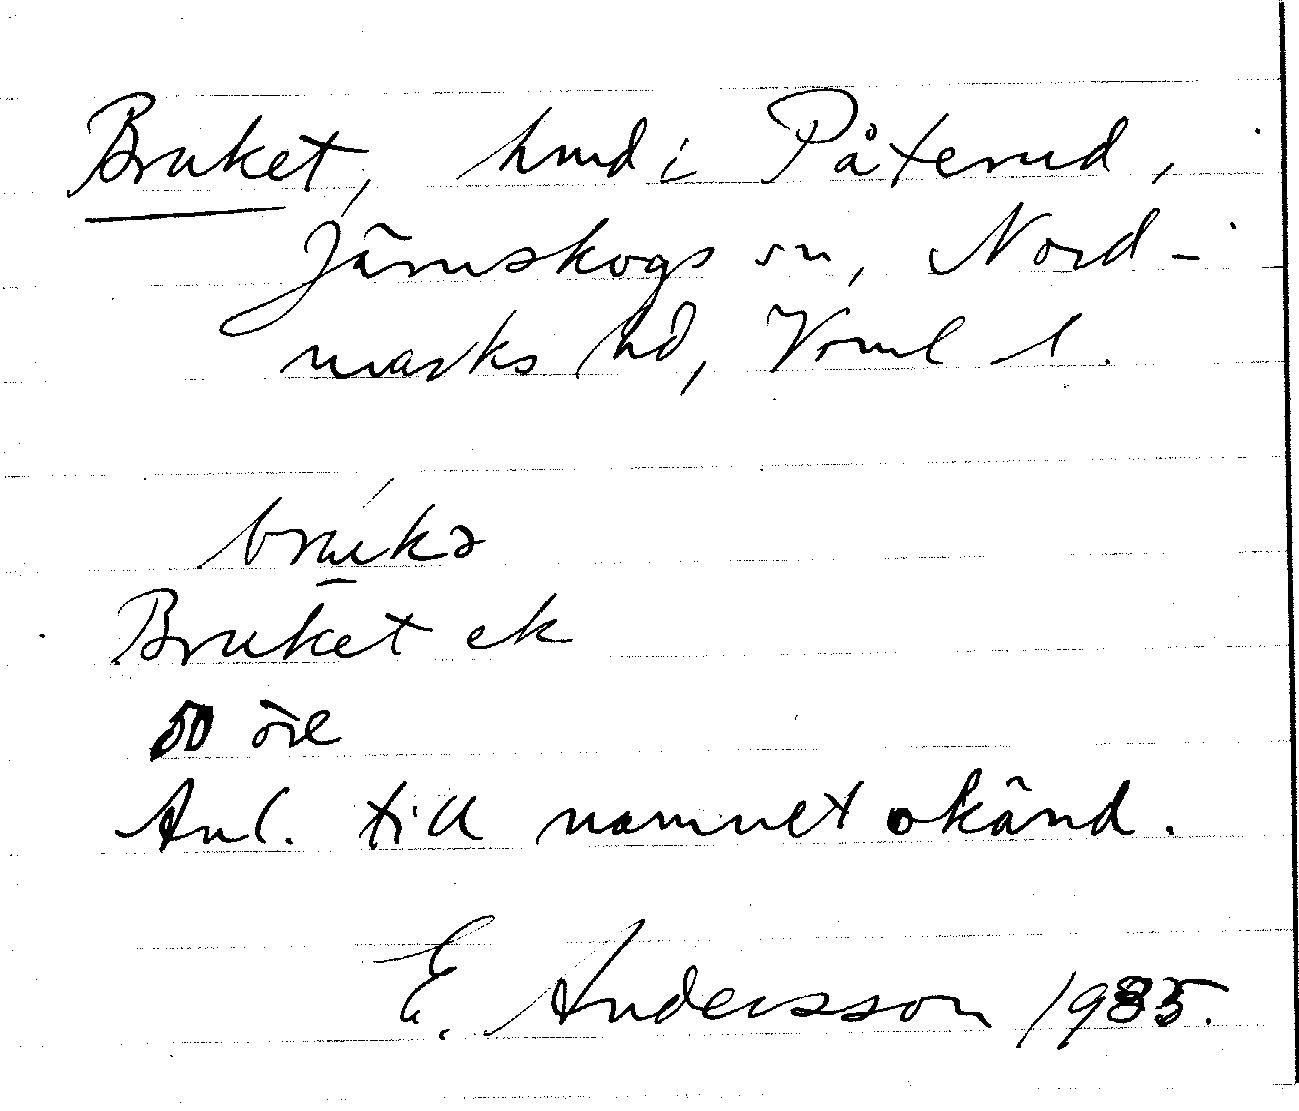 Bruket, hmd i Påterud,
Järnskogs sn, Nord-
marks hd, Vrml l.
brúkə
Bruket ek
50 öre
Anl. till namnet okänd.
E. Andersson 1935.